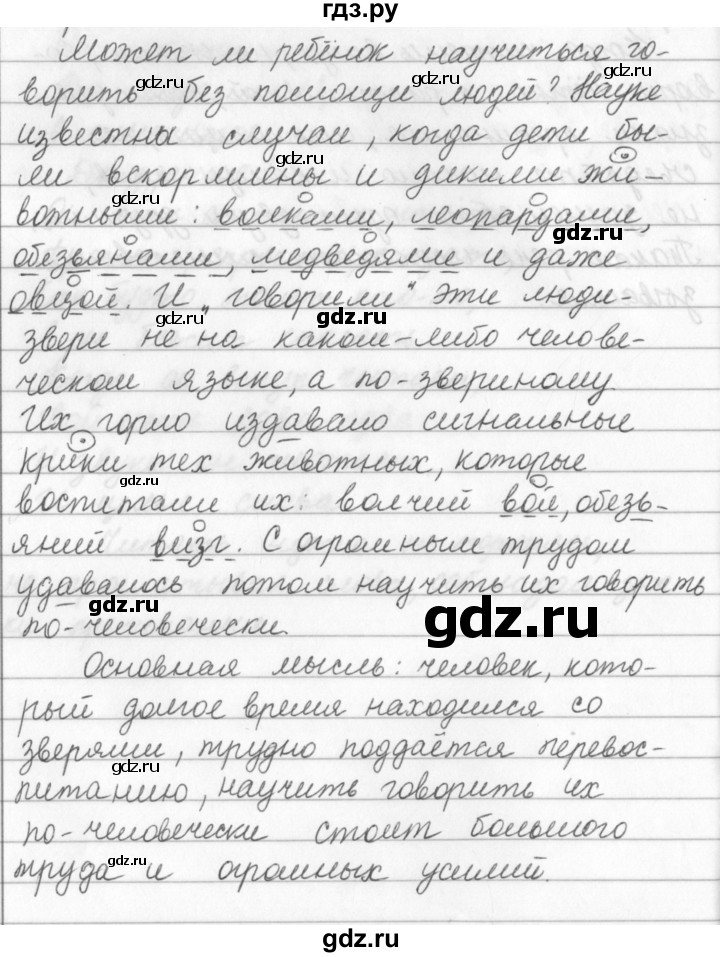 гдз.ру
Может ли ребёнок научиться го-
gdz.ru gdz.ru
ворить без помощи людей? Науке
gdz.ru
известны случаи, когда дети бы-
gdz.ru
ли вскормлены и дикими жи-
gdz.ru
вотными: волками, леопардами,
gdz.ru
обезьянами, медведями и даже
gdz.ru
овцой. И „говорили" эти люди-
gdz.ru gdz.ru
звери не на каком-либо челове-
ческом языке, а по-звериному.
gdz.ru
Их горло издавало сигнальные
gdz.ru
крики тех животных, которые
gdz.ru gdz.ru
воспитали их: волчий вой, обезь-
gdz.ru
яний визг. С огромным трудом
gdz.ru
удавалось потом научить их говорить
gdz.ru gdz.ru
по-человечески.
gdz.ru
Основная мысль: человек, кото-
рый долгое время находился со
gdz.ru
зверями, трудно поддаётся перевос-
gdz.ru
питанию, научить говорить их
gdz.ru
по-человечески стоит большого
труда и огромных усилий.
gdz.ru
gdz.ru